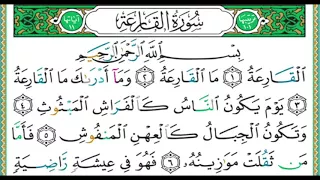 سُورَةُ القَارِعَة
بِسْمِ اللَّهِ الرَّحْمَٰنِ الرَّحِيمِ
الْقَارِعَةُ ١ مَا الْقَارِعَةُ ٢ وَمَا أَدْرَىٰكَ مَا الْقَارِعَةُ
٣ يَوْمَ يَكُونُ النَّاسُ كَالْفَرَاشِ الْمَبْثُوثِ ٤
وَتَكُونُ الْجِبَالُ كَالْعِهْنِ الْمَنفُوشِ ٥ فَأَمَّا
مَن ثَقُلَتْ مَوَٰزِينُهُۥ ٦ فَهُوَ فِى عِيشَةٍ رَّاضِيَةٍ